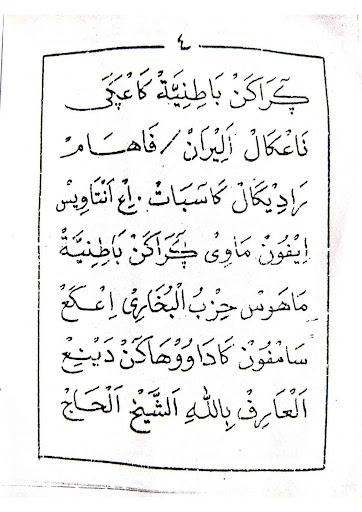 ٤
كٓرَاكَنْ بَاطِنِيَّةْ
نَاعْكَالْ اَلِيْرَانْ / فَاهَامْ
رَادِيْكَالْ كَاسَبَاتْ . اِعْ اَنْتَاوِيْسْ
اِيْفُوْنْ مَاوِيْ كٓرَاكَنْ بَاطِنِيَّةْ
مَاهَوْسْ حِزْبُ الْبُخَارِيْ اِعْكَعْ
سَامْفُوْنْ كَادَاوُوْهَاكَنْ دَيْنِعْ
اَلْعَارِفْ بِاللهِ اَلشَّيْخْ اَلْحَاجْ